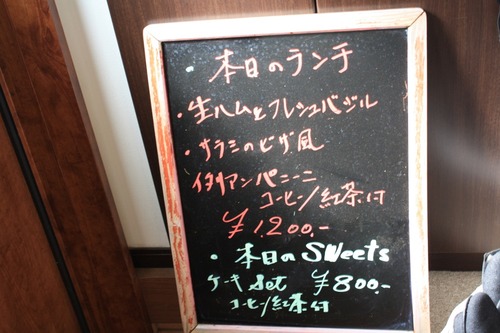 ・本日のランチ
・生ハムとフレシュバジル
・サラミのピザ風
イタリアンパニーニ
コーヒー/紅茶付
¥1200.-
・本日のSweets
ケーキSet ¥800.-
コーヒー/紅茶付